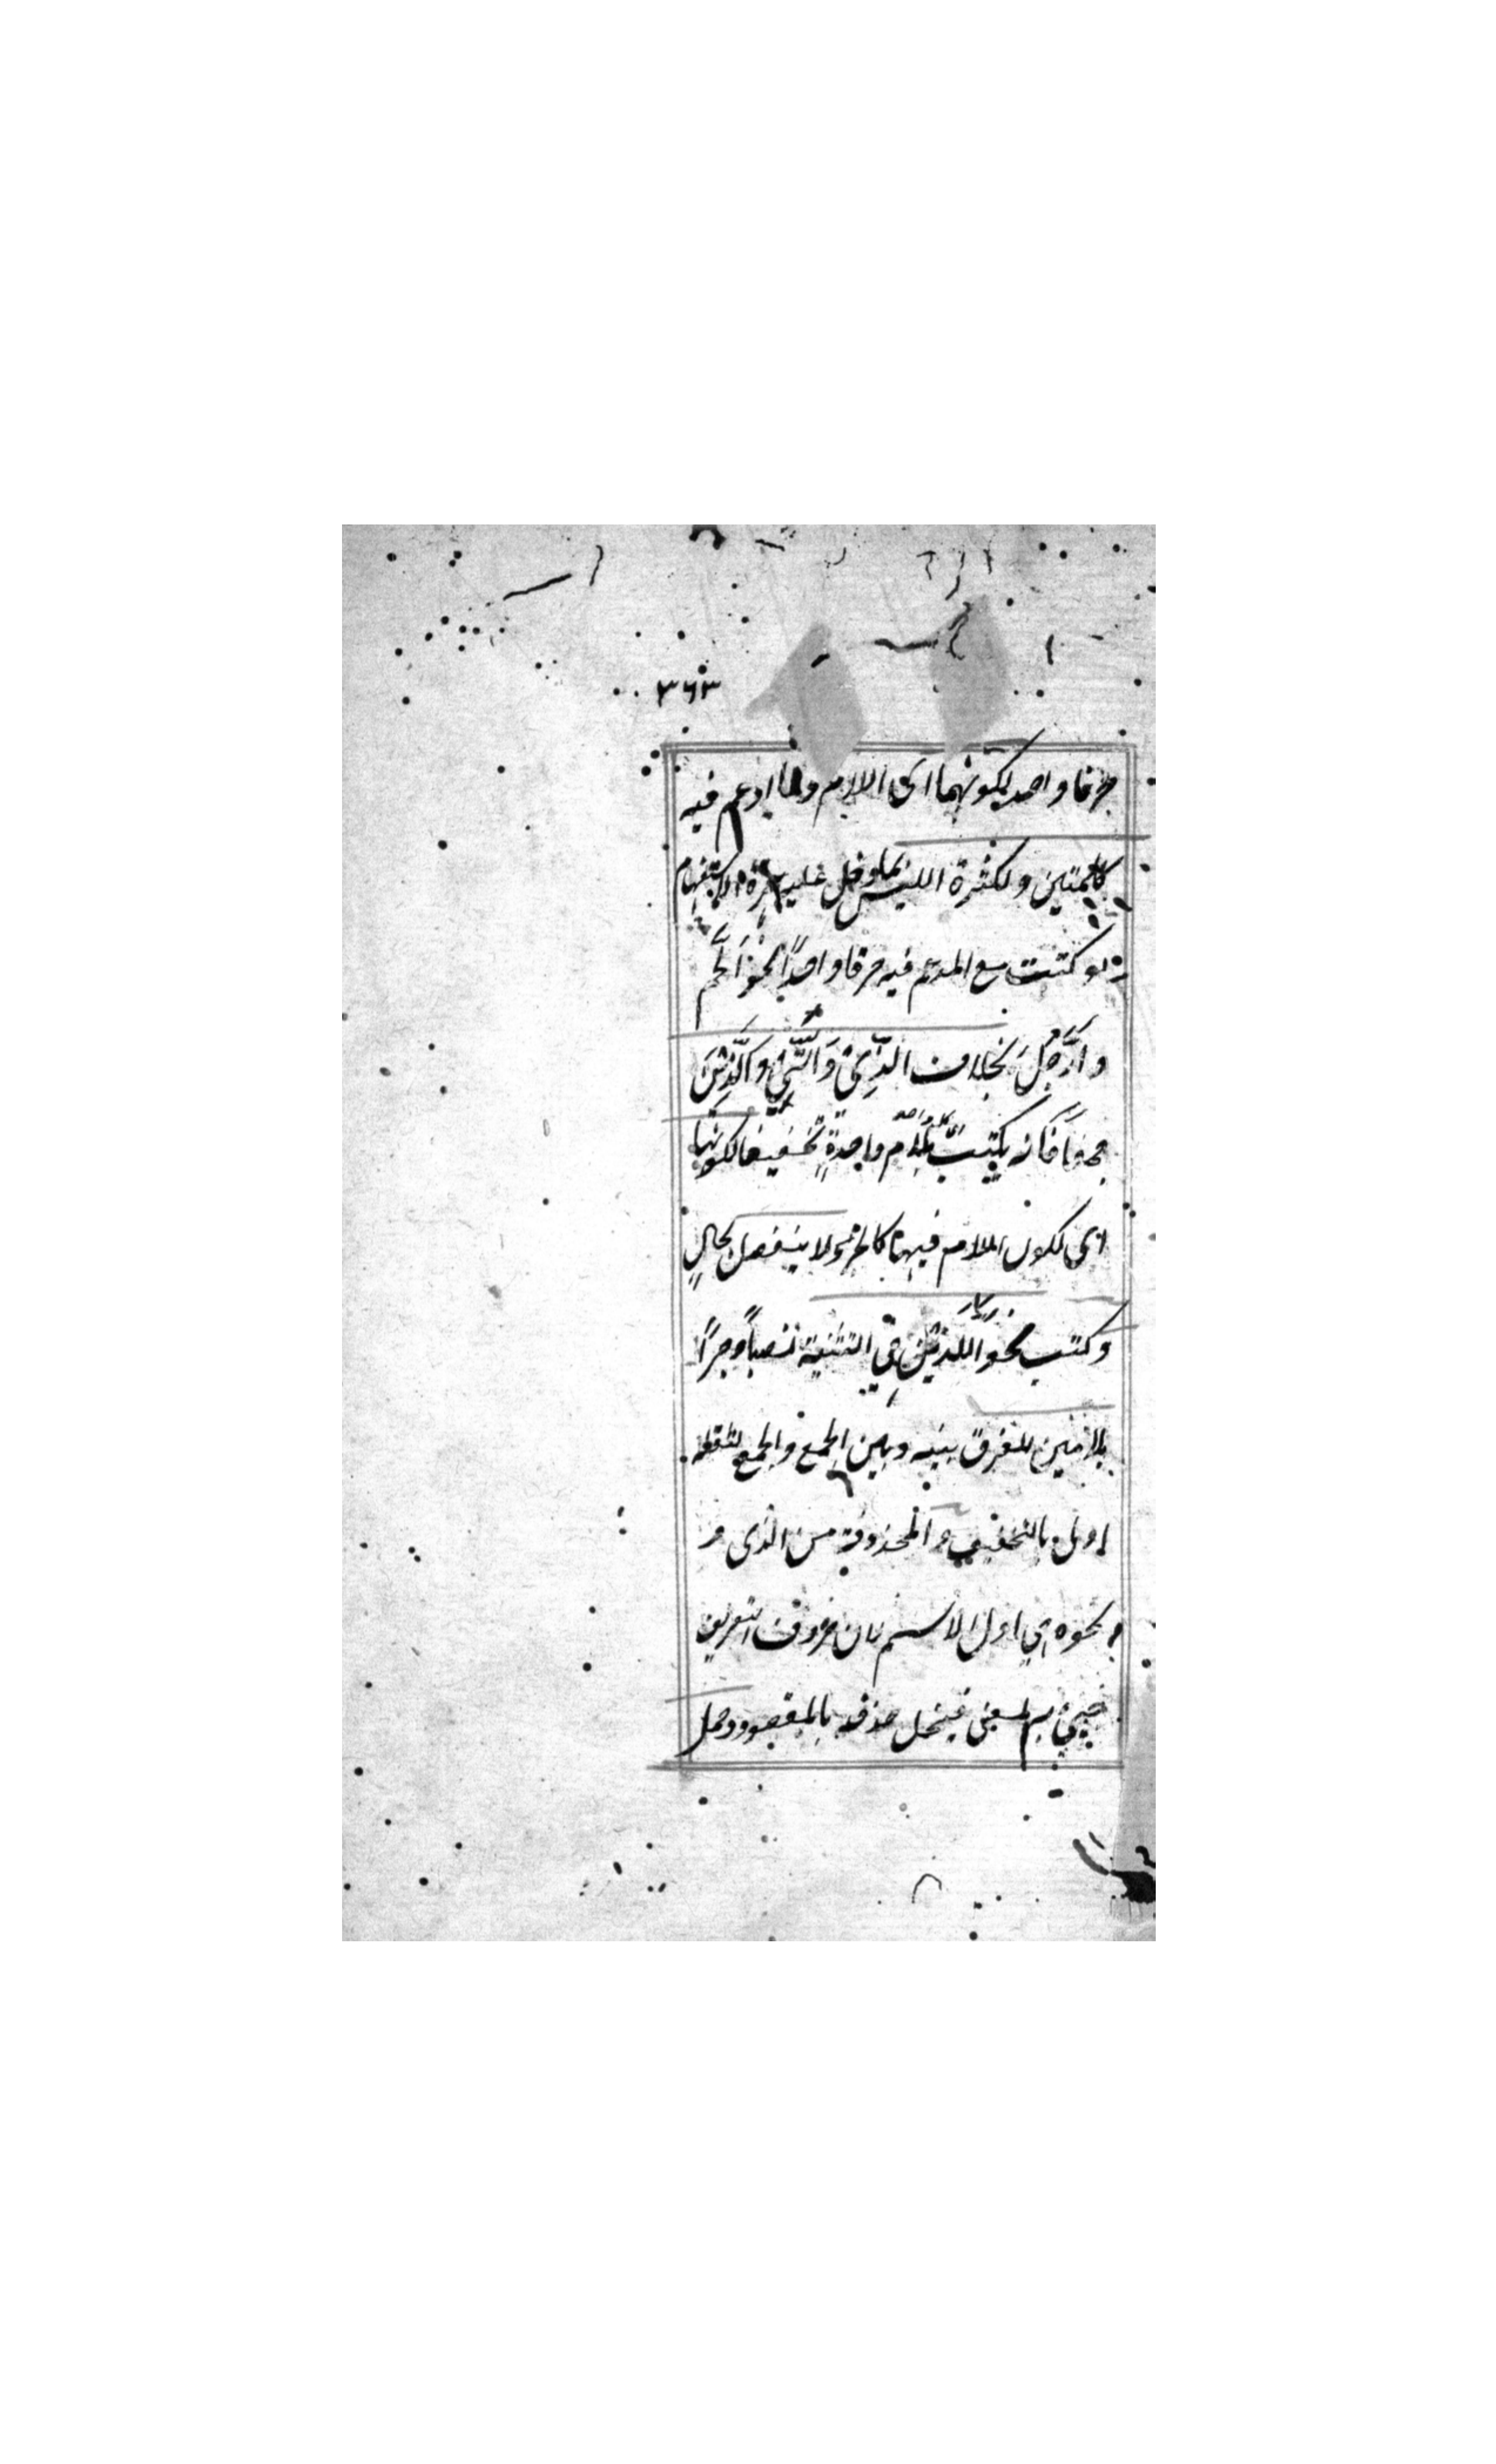 ٣٦٣
حرفا واحد لكونهما اى اللام وما ادغم فيه
كالكلمتين ولكثرة اللبس بما دخل عليه همزة الاستفهام
لو كتبت مع المدغم فيه حرفا واحدًا نحو اَلَّحم
واَرَّجُلَ بخلاف الذِّىْ وَالَّتِىْ وَالَّذِيْنَ
جمعًا فانه يكتب بِلامٍ واحِدَةٍ تخفيفا لكونها
اى لكون اللام فيها كالجزء لا ينفصل بحالٍ
وكتب نحو اللَّذَيْنِ فِى التثنية نصباً وجرًّا
بلامين للفرق بينه وبين الجمع والجمع لثقله
اولى بالتخفيف والمحذوفة من الذى و
نحوه اى اول الاسم لان حروف التعريف
جيئ بـه لمعنى فيخل حذفه بالمقصود وحمل